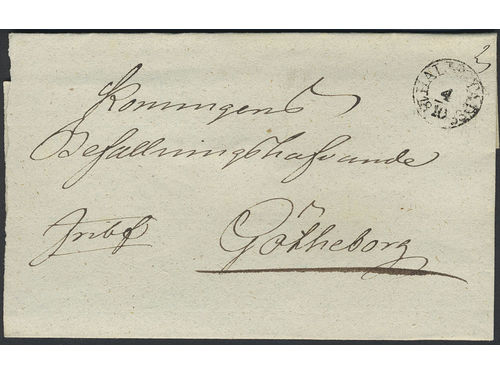 Konungens
Befallningshafvande
Fribf
Götheborg
4
10